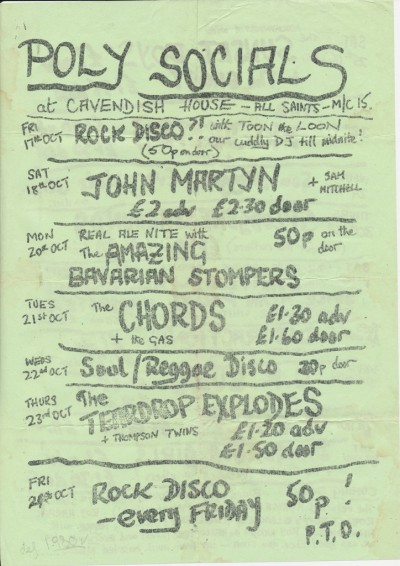 POLY SOCIALS
at CAVENDISH HOUSE - ALL SAINTS - M/C 15.
FRI 17TH OCT ROCK DISCO?! with TOON the LOON
(50p on door) our cuddly DJ till midnite!
SAT 18TH OCT JOHN MARTYN + SAM MITCHELL
£2 adv £2.30 door
MON 20TH OCT REAL ALE NITE with 50p on the door
The AMAZING
BAVARIAN STOMPERS
TUES 21ST OCT The CHORDS £1.30 adv
+ the GAS £1.60 door
WEDS 22ND OCT Soul/Reggae Disco 20p door
THURS 23RD OCT The TEARDROP EXPLODES
+ THOMPSON TWINS £1.20 adv
£1.50 door
FRI 24TH OCT ROCK DISCO 50p!
- every FRIDAY
P.T.O.